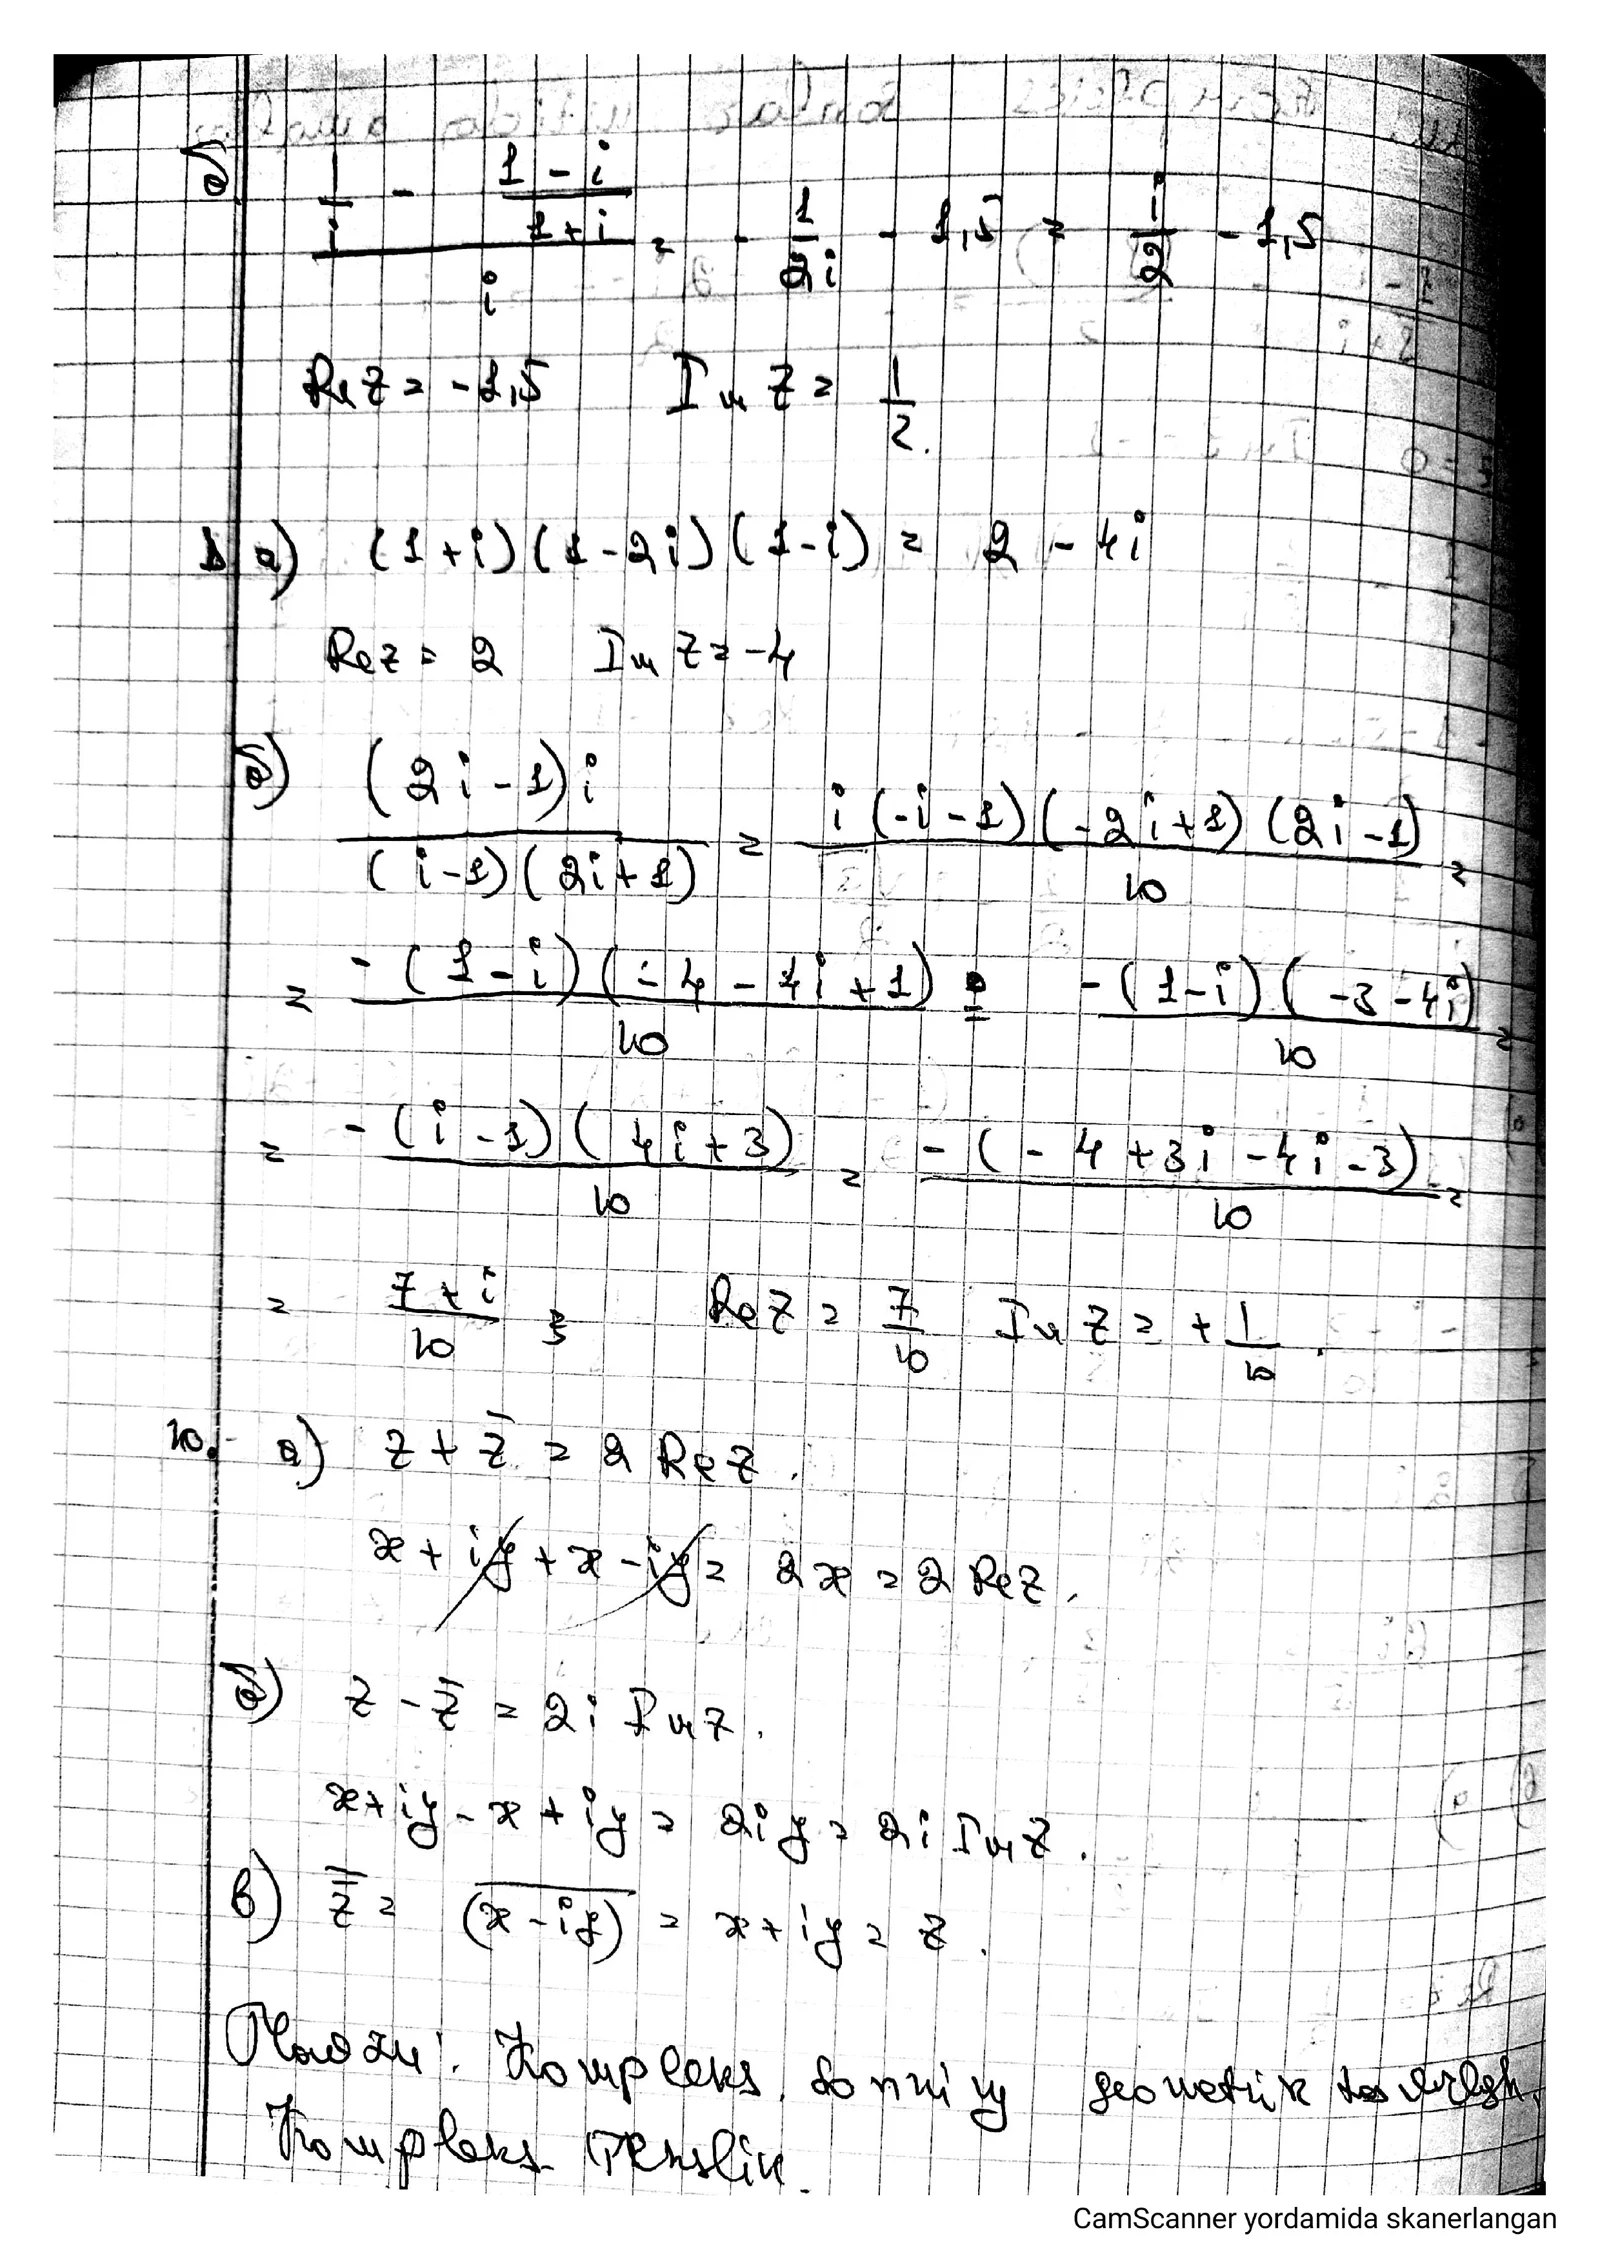 б) (1/i - (1-i)/(1+i))/i = - 1/2i - 1,5 = i/2 - 1,5
Re z = -1,5 Im z = 1/2.
a) (1+i)(1-2i)(1-i) = 2 - 4i
Re z = 2 Im z = -4
б) (2i-1)i/((i-1)(2i+1)) = i(-i-1)(-2i+1)(2i-1)/10 =
= -(1-i)(-4-4i+1)/10 = -(1-i)(-3-4i)/10 =
= -(i-1)(4i+3)/10 = -(-4+3i-4i-3)/10 =
= (7+i)/10 ; Re z = 7/10 Im z = +1/10.
10. a) z + z̄ = 2 Re z.
x + iy + x - iy = 2x = 2 Re z.
б) z - z̄ = 2i Im z.
x + iy - x + iy = 2iy = 2i Im z.
в) z̿ = \overline{(x-iy)} = x + iy = z.
Kompleks sonning geometrik
Kompleks tekslik.
CamScanner yordamida skanerlangan